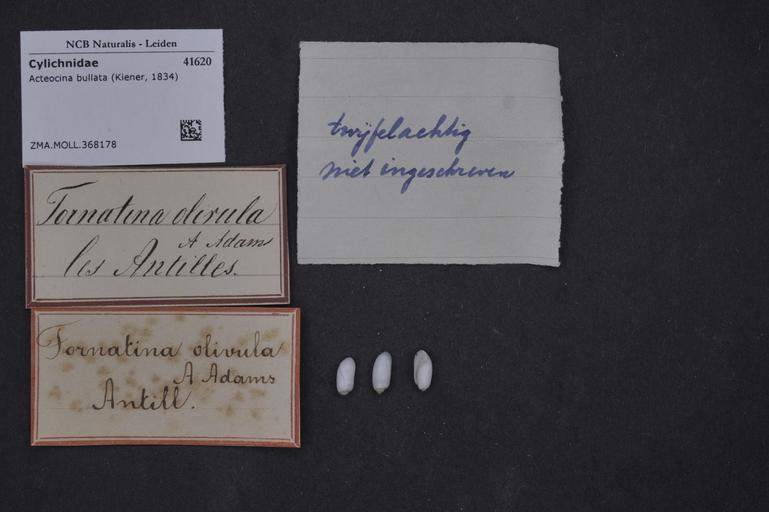 NCB Naturalis - Leiden
Cylichnidae 41620
Acteocina bullata (Kiener, 1834)
ZMA.MOLL.368178
twijfelachtig
niet ingeschreven
Tornatina olivula
A Adams
les Antilles.
Tornatina olivula
A Adams
Antill.